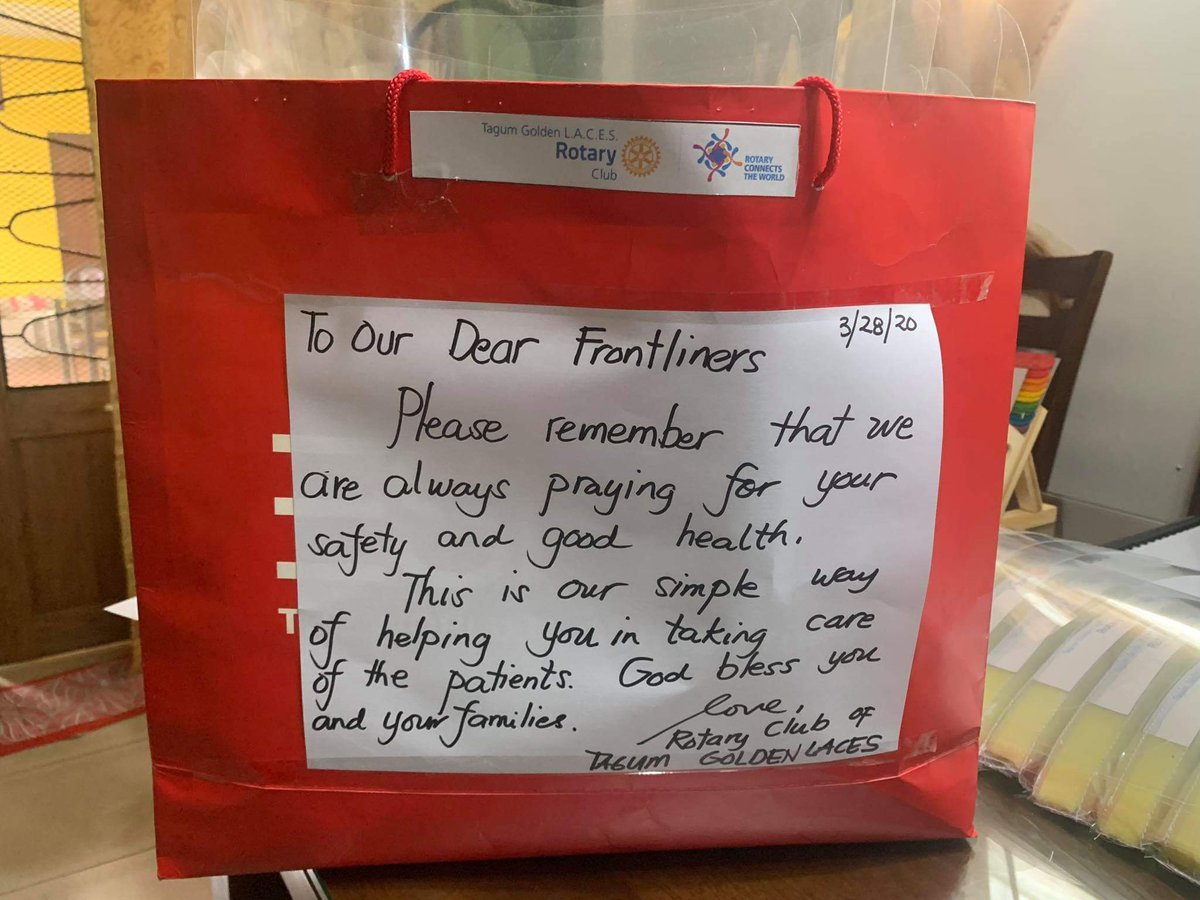 Tagum Golden L.A.C.E.S.
Rotary
Club
ROTARY
CONNECTS
THE WORLD
3/28/20
To Our Dear Frontliners
Please remember that we
are always praying for your
safety and good health.
This is our simple way
of helping you in taking care
of the patients. God bless you
and your families.
love,
Rotary Club of
TAGUM GOLDEN LACES
T